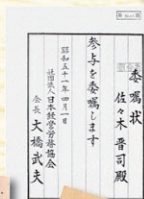 委嘱状
佐々木晋司殿
参与を委嘱します
昭和五十一年四月一日
社団法人日本経営労務協会
会長 大橋武夫